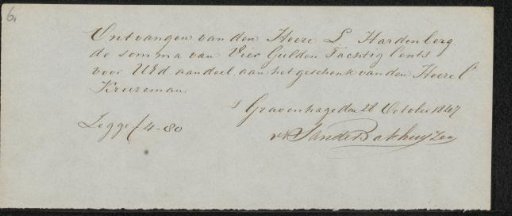 6,
Ontvangen van den Heere L Hardenberg
de somma van Vier Gulden Tachtig Cents
voor UEd aandeel aan het geschenk van den Heere C
Kruseman
s Gravenhage den 28 October 1847
Zegge f 4-80
vd Sande Bakhuyzen